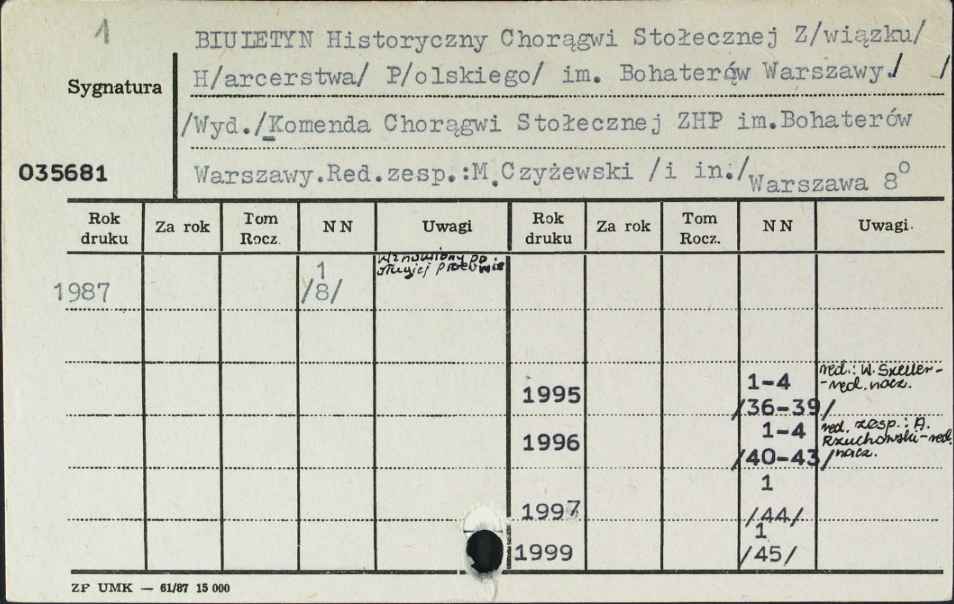 1
BIULETYN Historyczny Chorągwi Stołecznej Z/wiązku/
H/arcerstwa/ P/olskiego/ im. Bohaterów Warszawy./ /
Sygnatura
/Wyd./Komenda Chorągwi Stołecznej ZHP im.Bohaterów
035681
Warszawy.Red.zesp.:M.Czyżewski /i in./
Warszawa 8°
Rok druku Za rok Tom Rocz. NN Uwagi Rok druku Za rok Tom Rocz. NN Uwagi
Wznowiony po
długiej przerwie
1987 1 /8/
1995 1-4 /36-39/ red.: W. -red. nacz.
1996 1-4 /40-43/ red. zesp.: A. Rzuchowski-red. nacz.
1997 1 /44/
1999 1 /45/
ZP UMK — 61/87 15 000